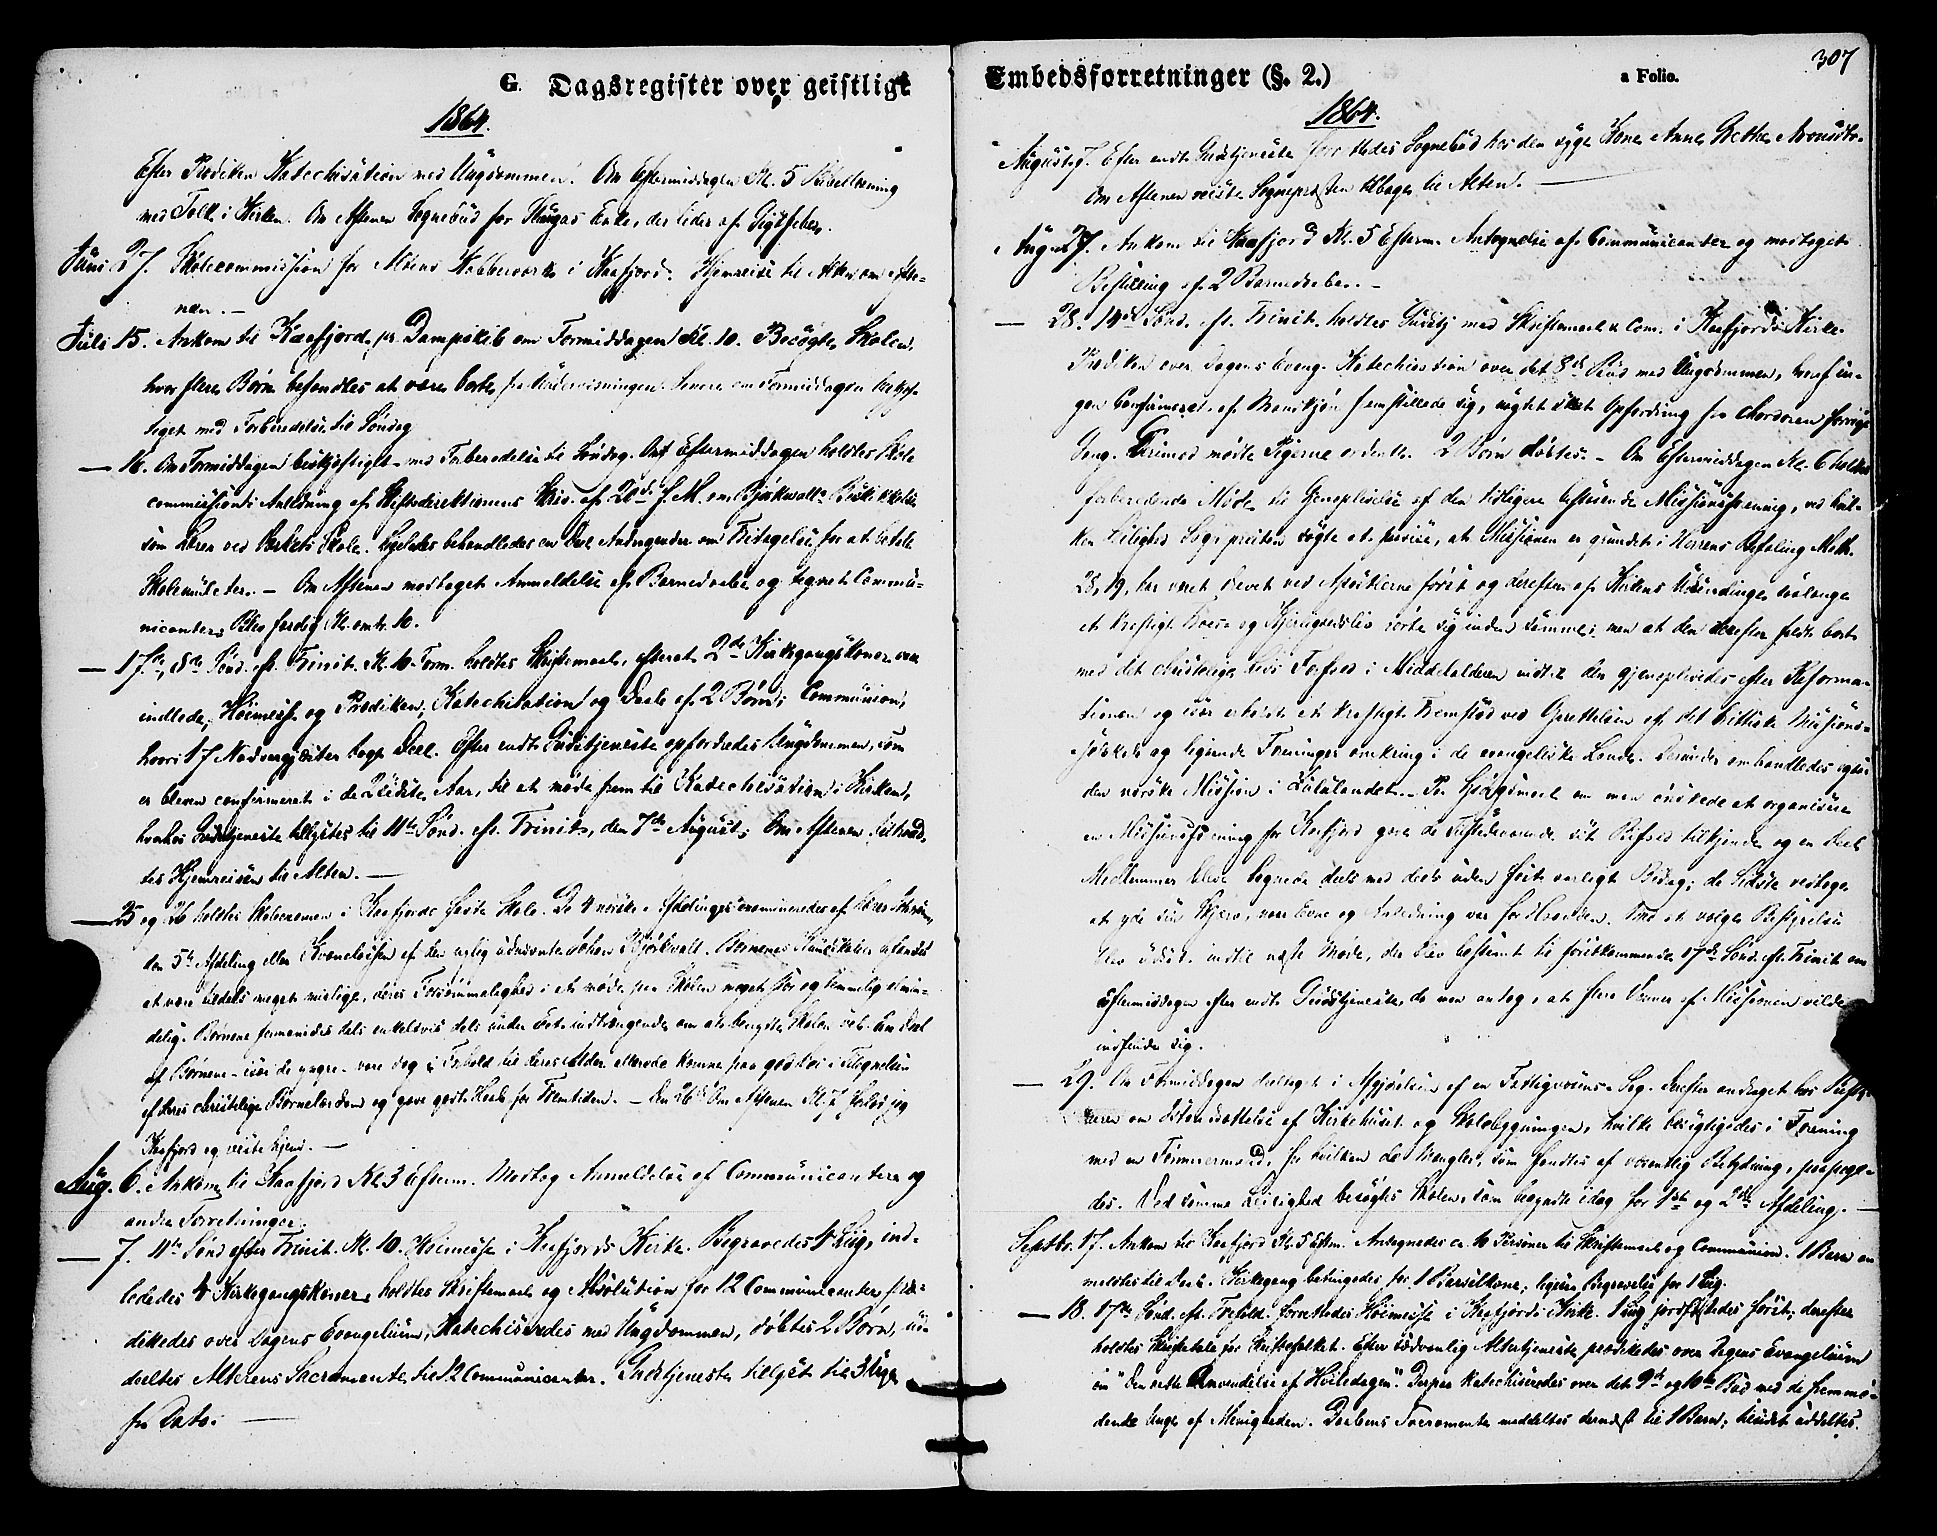 G. Dagsregister over geistlige
1864.
Efter Prædiken Katechisation med Ungdommen. Om Eftermiddagen Kl. 5 Bibellæsning
med Folk i Kirken. Om Aftenen Sognebud for Enke, der lider af Gigtfeber.
Juni 27. Skolecommission for Altens Kobberværk i Kaafjord. Hjemreise til Alten om Afte-
nen. -
Juli 15. Ankom til Kaafjord pr Dampskib om Formiddagen Kl. 10. Besøgte Skolen,
hvor flere Børn befandtes at være borte fra Undervisningen. Senere om Formiddagen beskjæf-
tiget med Forberedelse til Søndag
— 16. Om Formiddagen beskjæftiget med Forberedelse til Søndag. Om Eftermiddagen holdtes Skole
commission i Anledning af Stiftsdirektionens Skriv. af 20de f. M. om
som Lærer ved Værkets Skole. Ligeledes behandledes en Deel Andragender om Fritagelse for at betale
Skolemulcter. - Om Aftenen modtaget Anmeldelse af Barnedaabe og tegnet Commu-
nicanter. Blev færdig Kl. omtr. 10.
— 17de, 8de Sønd. eft. Trinit. Kl. 10 Form. holdtes Skriftemaal, efterat 2de Kirkegangskoner vare
indledede, Høimesse og Prædiken, Katechisation og Daab af 2 Børn; Communion,
hvori 17 Nadvergjæster toge Deel. Efter endt Gudstjeneste opfordredes Ungdommen, som
er bleven confirmeret i de 2 sidste Aar, til at møde frem til Katechisation i Kirken,
hvorhos Gudstjeneste tillystes til 11te Sønd. eft. Trinit., den 7de August. Om Aftenen tiltraad-
tes Hjemreisen til Alten. —
— 25 og 26 holdtes Skoleexamen i Kaafjords faste Skole. De 4 norske Afdelinger examineredes af Lærer
den 5te Afdeling eller Kvæneklassen af den nylig udnævnte Johan Bjørkvall. Børnenes Kundskaber befandtes
at være tildels meget maadelige, deres Forsømmelighed i at møde paa Skolen meget stor og temmelig almin-
delig. Børnene formanedes dels enkeltvis dels under Eet indtrængende om at benytte Skolen vel. En Deel
af Børnene - især de yngre - vare dog i Forhold til deres Alder allerede komne paa god Vei i Tilegnelsen
af deres christelige Børnelærdom og gave godt Haab for Fremtiden. - Den 26de Om Aftenen Kl. 7 forlod jeg
Kaafjord og reiste hjem. —
Aug. 6. Ankom til Kaafjord Kl. 3 Efterm. Modtog Anmeldelse af Communicantere og
andre Forretninger.
— 7. 11te Sønd efter Trinit. Kl. 10. Høimesse i Kaafjords Kirke. Begravedes 4 Liig, ind-
lededes 4 Kirkegangskoner, holdtes Skriftemaal og Absolution for 12 Communicanter, præ-
dikedes over Dagens Evangelium, Katechiseredes med Ungdommen, døbtes 2 Børn, ud-
deeltes Alterens Sacramente til 12 Communicanter. Gudstjeneste tillyst til 3 Uger
fra Dato. —
Embedsforretninger (§. 2.)
a Folio.
307
1864.
August 7. Efter endt Gudstjeneste forrettedes Sognebud hos den syge Kone Anne Grethe
Om Aftenen reiste Sognepræsten tilbage til Alten. —
Aug. 27. Ankom til Kaafjord Kl. 5 Efterm. Antegnelse af Communicanter og modtaget
Bestilling af 2 Barnedaabe. -
— 28. 14de Sønd. eft. Trinit. holdtes Gudstj med Skriftemaal & Com. i Kaafjords Kirke.
Prædiken over Dagens Evang. Katechisation over det 8de Bud med Ungdommen, hvoraf in-
gen Confirmeret af Mandkjøn fremstillede sig, uagtet sket Opfordring fra Chordøren forrige
Gang. Derimod mødte Pigerne ordentl. 2 Børn døbtes. - Om Eftermiddagen Kl. 6 holdtes
forberedende Møde til Gjenoplivelse af den tidligere bestaaende Missionsforening, ved hvil-
ken Leilighed Sognepræsten søgte at bevise, at Missionen er grundet i Herrens Befaling Math.
28, 19, har været drevet ved Apostlerne først og derefter af Kirkens Udsendinge saalænge
et kraftigt Troes- og Kjærlighedsliv rørte sig inden samme, men at den derefter faldt bort
med det christelige Livs Forfald i Middelalderen indtil den gjenoplivedes efter Reforma-
tionen og især erholdt et kraftigt Fremstød ved Oprettelsen af det brittiske Missions-
selskab og lignende Foreninger omkring i de evangeliske Lande. Desuden omhandledes ogsaa
den norske Mission i Zululandet. - Paa Spørgsmaal om man ønskede at organisere
en Missionsforening for Kaafjord gave de Tilstedeværende sit Bifald tilkjende og en Deel
Medlemmer bleve tegnede deels med deels uden fast aarligt Bidrag; de sidste vedtoge
at yde sin Skjærv, naar Evne og Anledning var forhaanden. Med at vælge Bestyrelse
blev udsat indtil næste Møde, der blev bestemt til førstkommende 17de Sønd. eft. Trinit om
Eftermiddagen efter endt Gudstjeneste, da man antog, at flere Venner af Missionen vilde
indfinde sig.
— 29. Om Formiddagen deeltaget i Afgjørelsen af en Fattigvæsens-Sag. Derefter andraget hos Besty-
reren om Istandsættelse af Kirkehuset og Skolebygningen, hvilke besigtigedes i Forening
med en Tømmermand, for hvilken de Mangler, som fandtes af væsentlig Betydning, paapege-
des. Ved samme Leilighed besøgtes Skolen, som begyndte idag for 1ste og 2den Afdeling. —
Septbr. 17. Ankom til Kaafjord Kl. 5 Eftm. Antegnedes ca. 10 Personer til Skriftemaal og Communion. 1 Barn an-
meldtes til Daab. Kirkegang betingedes for 1 Barselkone; ligesaa Begravelse for 1 Liig.
— 18. 17de Sønd. eft. Trefold. forrettedes Høimesse i Kaafjords Kirke. 1 Liig jordfæstedes først, derefter
holdtes Skriftetale for Skriftefolket. Efter sædvanlig Altertjeneste prædikedes over Dagens Evangelium
om "den rette Anvendelse af Hviledagen". Derpaa Katechiseredes over det 9de og 10de Bud med de fremmø-
dende Unge af Menigheden. Daabens Sacramente meddeltes dernæst til 1 Barn; tilsidst uddeltes